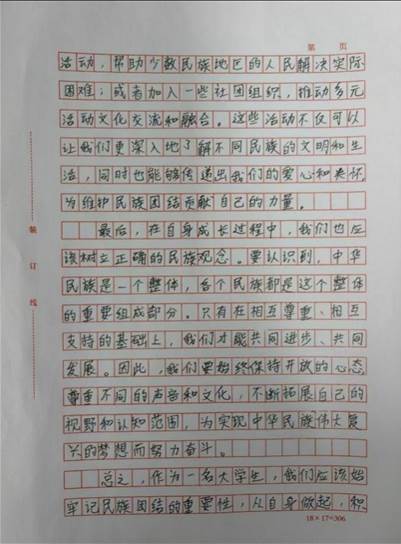 第 页
活动，帮助少数民族地区的人民解决实际
困难；或者加入一些社团组织，推动多元
活动文化交流和融合。这些活动不仅可以
让我们更深入地了解不同民族的文明和生
活，同时也能够传递出我们的爱心和关怀，
为维护民族团结贡献自己的力量。
最后，在自身成长过程中，我们也应
该树立正确的民族观念。要认识到，中华
民族是一个整体，各个民族都是这个整体
的重要组成部分。只有在相互尊重、相互
支持的基础上，我们才能共同进步、共同
发展。因此，我们要始终保持开放的心态，
尊重不同的声音和文化，不断拓展自己的
视野和认知范围，为实现中华民族伟大复
兴的梦想而努力奋斗。
总之，作为一名大学生，我们应该始
牢记民族团结的重要性，从自身做起，积
装
订
线
18×17=306